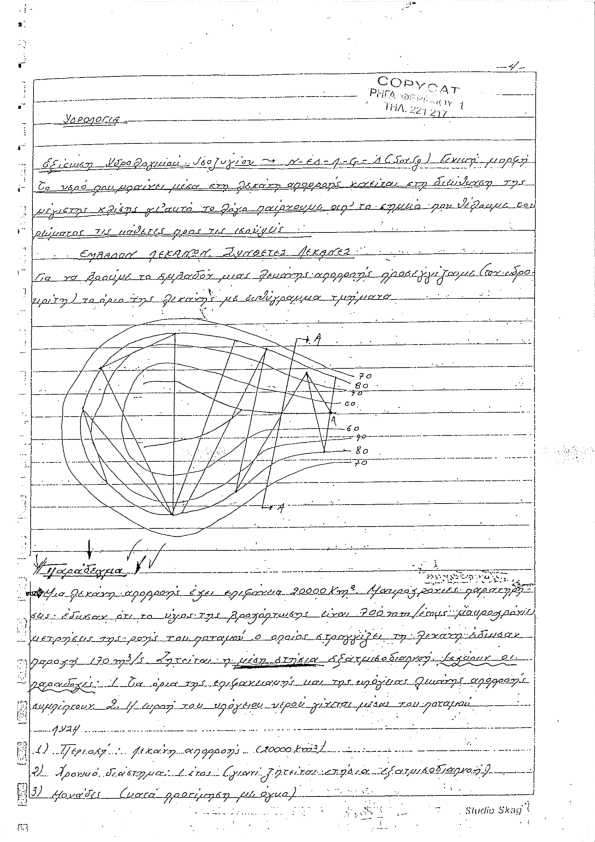 -4-
COPYCAT
ΡΗΓΑ ΦΕΡΑΙΟΥ 1
ΤΗΛ. 221 217
ΥΔΡΟΛΟΓΙΑ
Εξίσωση Υδρολογικού Ισοζυγίου → Γενική μορφή
Το νερό που μπαίνει μέσα στη λεκάνη απορροής κινείται στη διεύθυνση της
μέγιστης κλίσης γι'αυτό το λόγο παίρνουμε απ' το σημείο που θέλουμε του
ρεύματος τις κάθετες προς τις ισοϋψείς
ΕΜΒΑΔΟΝ ΛΕΚΑΝΩΝ ΣΥΝΘΕΤΕΣ ΛΕΚΑΝΕΣ
Για να βρούμε το εμβαδόν μιας λεκάνης απορροής προσεγγίζουμε (τον υδρο-
κρίτη) το όριο της λεκάνης με ευθύγραμμα τμήματα
A
70
80
90
60
A
60
90
80
70
A
Παράδειγμα
Μια λεκάνη απορροής έχει επιφάνεια 20000 Km². Μακροχρόνιες παρατηρή-
σεις έδωσαν ότι το ύψος της βροχόπτωσης είναι 700 mm/έτος μακροχρόνιες
μετρήσεις της ροής του ποταμού ο οποίος στραγγίζει τη λεκάνη έδωσαν
παροχή 170 m³/s. Ζητείται η μέση ετήσια εξατμισοδιαπνοή. Ισχύουν οι
παραδοχές: 1. Τα όρια της επιφανειακής και της υπόγειας λεκάνης απορροής
συμπίπτουν 2. Η εκροή του υπόγειου νερού γίνεται μέσω του ποταμού
ΛΥΣΗ
1) Περιοχή: λεκάνη απορροής (20000 km²)
2) Χρονικό διάστημα: 1 έτος (γιατί ζητείται ετήσια εξατμισοδιαπνοή)
3) Μονάδες (κατά προτίμηση με όγκο)
Studio Skag